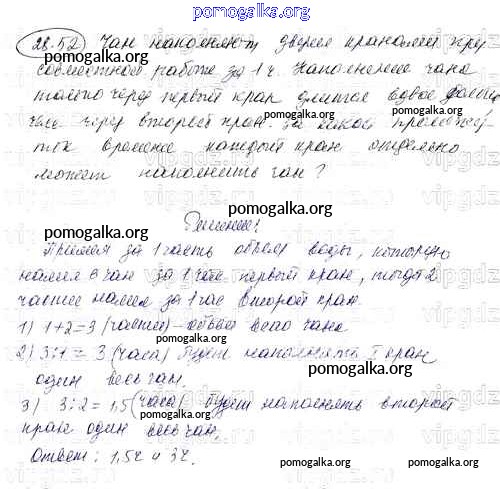 pomogalka.org
28.52 Чан наполняют двумя кранами при
совместной работе за 1 ч. Наполнение чана
только через первый кран длится вдвое дольше
чем через второй кран. За какой промежу-
pomogalka.org
ток времени каждый кран отдельно
может наполнить чан?
pomogalka.org
Решение
pomogalka.org
Примем за 1 часть объем воды, которую
налил в чан за 1 час первый кран, тогда 2
части налил за 1 час второй кран
1) 1+2=3 (части) - объем всего чана
pomogalka.org
2) 3:1 = 3 (часа) будет наполнять I кран
один весь чан.
pomogalka.org
3) 3:2 = 1,5 (часа) будет наполнять второй
pomogalka.org
кран один весь чан.
Ответ: 1,5ч и 3ч.
pomogalka.org
pomogalka.org